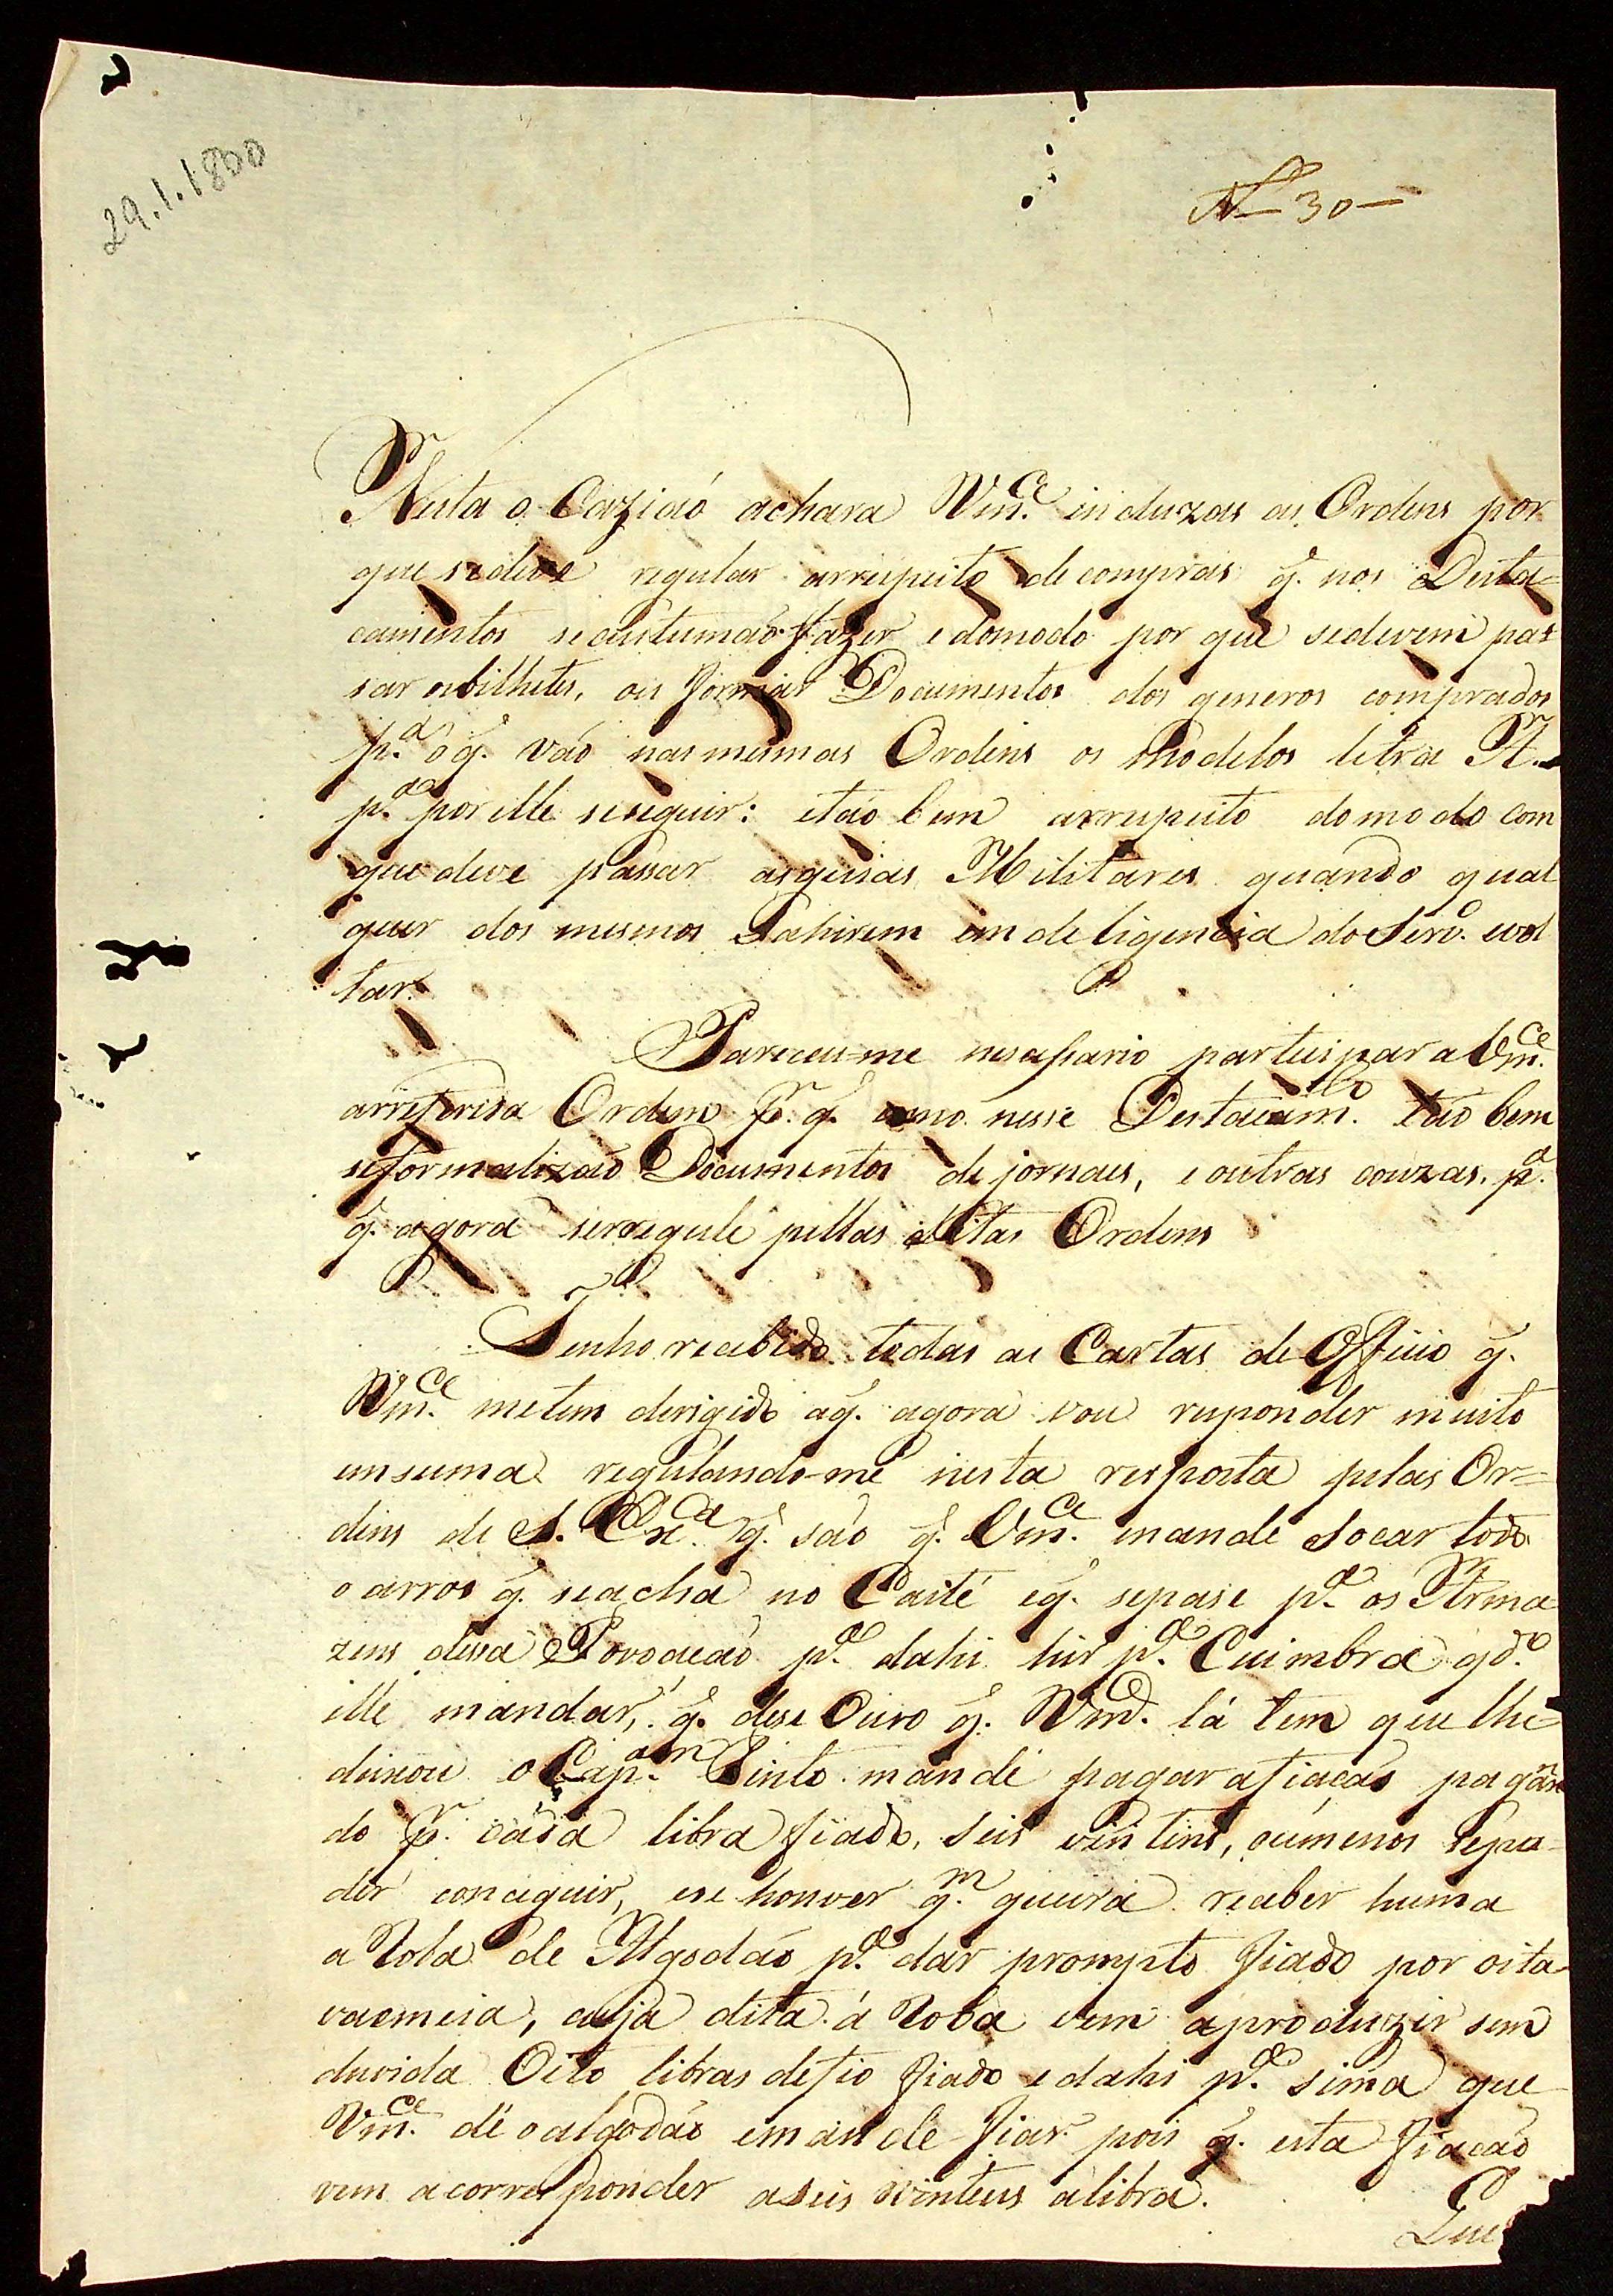 29.1.1800
N 30
Nesta o Caziaó achara Vm.ce incluzas as Ordens por
que sedeve regular arrespeito de compras q. nos Desta=
camentos secustumaó fazer e domodo por que sedevem pas
sar osbilhetes, ou formar Documentos dos generos comprados
p.a o q. vaó nasmesmas Ordens os modelos letra A.
p.a por elle seseguir: etaó bem arrespeito domodo com
que deve passar asguias Militares quando qual
quer dos mesmos Sahirem em deligencia do Serv.o evol
tar.
Pareceu-me nesassario participar a Vm.ce
arreferida Ordem p.r q. como nesse Destacam.to taó bem
seformalizaó Documentos de jornaes, e outras couzas, p.a
q. agora serregule pellas ditas Ordens
Tenho recebido todas as Cartas de Officio q.
Vm.ce metem derigido aq. agora vou responder muito
emsuma regulando-me nesta resposta pelas Or=
dens de S. Ex.ca q. saó q. Vm.ce mande Socar todo
o arros q. seacha no Caité eq. sepase p.a os Arma
zens dessa Povoacaó p.a dahi hir p.a Cuimbra qd.o
elle mandar, q. dese Ouro q. Vm.ce lá tem que lhe
deixou o Cap.am Pinto mande pagar afiacaó pagan
do p.r cada libra fiado, seis vintens, oúmenos sepu-
der conceguir, ese houver q.m queira receber huma
a Roba de Algodaó p.a dar prompto fiado por oita
vaemeia, cuja dita á Roba vem aproduzir sem
duvida Oito libras defio fiado edahi p.a sima que
Vm.ce dê oalgodaó emande fiar pois q. esta fiacaó
vem acorresponder aseis vinteus alibra.
Que